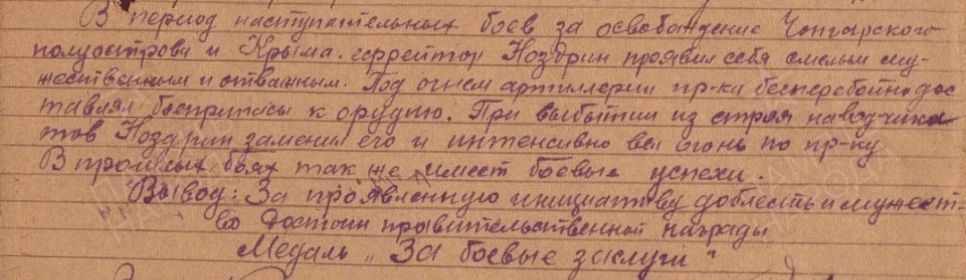 В период наступательных боев за освобождение Чонгарского
полуострова и Крыма. ефрейтор Ноздрин проявил себя смелым му-
жественным и отважным. Под огнем артиллерии пр-ка бесперебойно дос
тавлял боеприпасы к орудию. При выбытии из строя наводчика
тов Ноздрин заменил его и интенсивно вел огонь по пр-ку
В прошлых боях так же имеет боевые успехи.
Вывод: За проявленную инициативу доблесть и мужест-
во достоин правительственной награды
Медаль „За боевые заслуги"